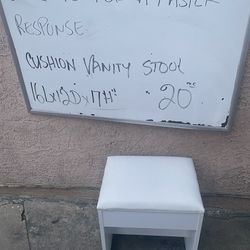 FOR A FASTER
RESPONSE
CUSHION VANITY STOOL
16Wx12Dx17H" 20⁰⁰